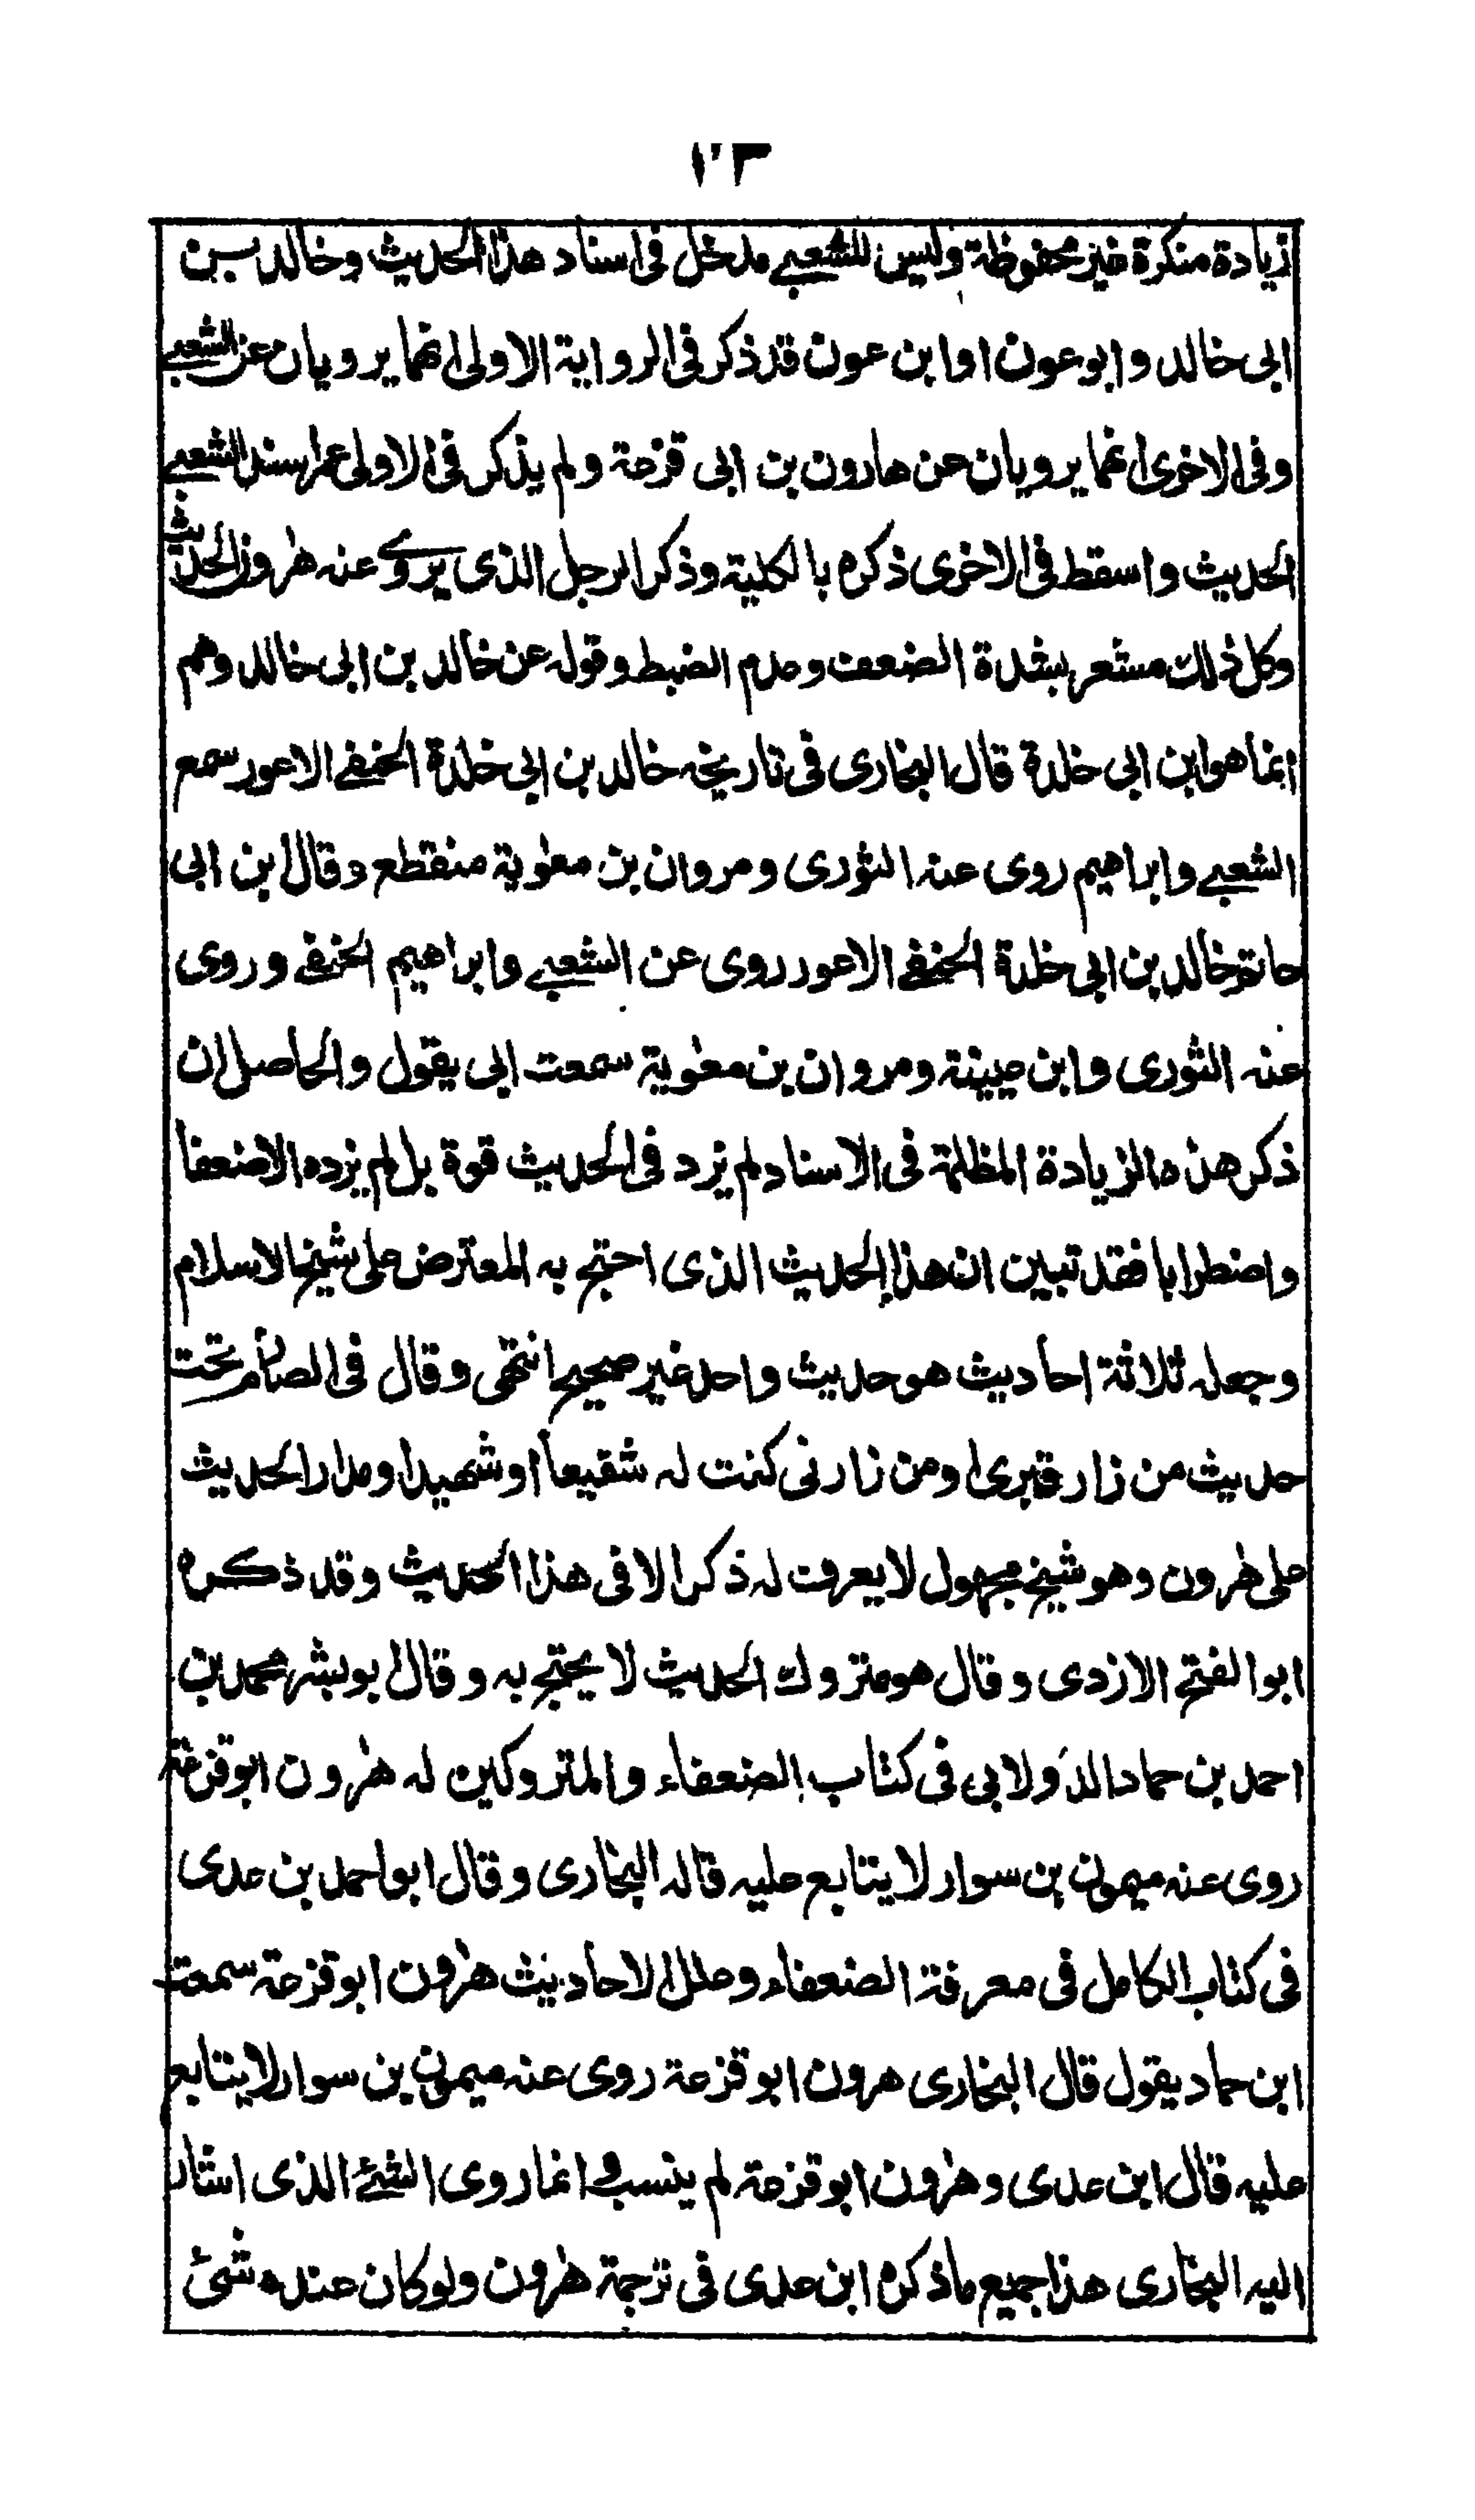 ١٢٣
زيادة منكرة غير محفوظة وليس للشعبي مدخل في اسناد هذا الحديث وخالد بن
ابي خالد وابو عون او ابن عون قد ذكر في الرواية الاولى انهما يرويان عن الشعبي
وفي الاخرى انهما يرويان عن هارون بن ابي قزعة ولم يذكر في الاولى عمن اسند الشعبي
الحديث واسقط في الاخرى ذكره بالكلية وذكر الرجل الذي يروي عنه هٰرون الحديث
وكل ذلك مشعر بشدة الضعف وعدم الضبط وقوله عن خالد بن ابي خالد وهم
انما هو ابن ابي خلدة قال البخاري في تاريخه خالد بن ابي خلدة الحنفي الاعور سمع
الشعبي وابراهيم روى عنه الثوري ومروان بن معٰوية منقطع وقال ابن ابي
حاتم خالد بن ابي خلدة الحنفي الاعور روى عن الشعبي وابراهيم الحنفي وروى
عنه الثوري وابن عيينة ومروان بن معٰوية سمعت ابي يقول والحاصل ان
ذكر هذه الزيادة المظلمة في الاسناد لم يزد في الحديث قوة بل لم يزده الا ضعفا
واضطرابا فقد تبين ان هذا الحديث الذي احتج به المعترض على شيخ الاسلام
وجعله ثلاثة احاديث هو حديث واحد غير صحيح انتهى وقال في الصارم تحت
حديث من زار قبري او من زارني كنت له شفيعاً او شهيدا ومدار الحديث
على هٰرون وهو شيخ مجهول لا يعرف له ذكر الا في هذا الحديث وقد ذكره
ابو الفتح الازدي وقال هو متروك الحديث لا يحتج به وقال ابو بشر محمد بن
احمد بن حماد الدَولابي في كتاب الضعفاء والمتروكين له هٰرون ابو قزعة
روى عنه ميمون بن سوار لا يتابع عليه قاله البخاري وقال ابو احمد بن عدي
في كتاب الكامل في معرفة الضعفاء وعلل الاحاديث هٰرون ابو قزعة سمعت
ابن حماد يقول قال البخاري هرون ابو قزعة روى عنه ميمون بن سوار لا يتابع
عليه قال ابن عدي وهٰرون ابو قزعة لم ينسب وانما روى الشئ الذي اشار
اليه البخاري هذا جميع ما ذكره ابن عدي في ترجمة هٰرون ولو كان عنده شئ